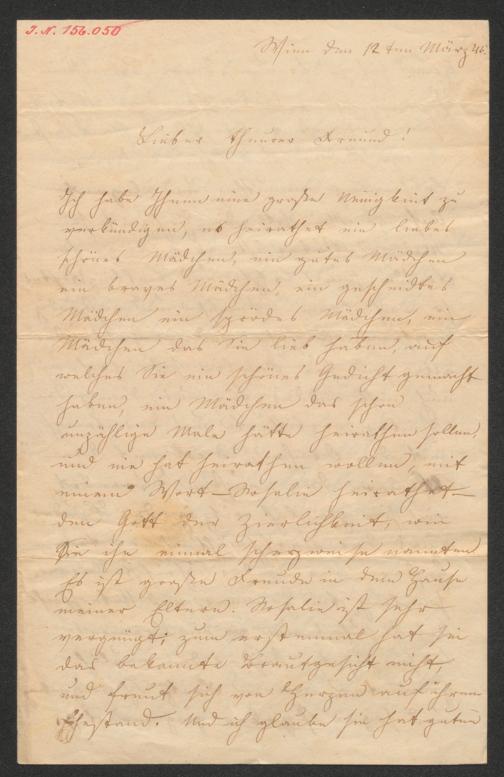 J. N. 156.050
Wien den 12ten März 46.
Lieber theurer Freund!
Ich habe Ihnen eine große Neuigkeit zu
verkündigen, es heirathet ein liebes
schönes Mädchen, ein gutes Mädchen
ein braves Mädchen, ein gescheidtes
Mädchen ein sprödes Mädchen, ein
Mädchen das Sie lieb haben, auf
welches Sie ein schönes Gedicht gemacht
haben, ein Mädchen das schon
unzählige Male hätte heirathen sollen,
und nie hat heirathen wollen, mit
einem Wort – Rosalie heirathet –
den Gott der Zierlichkeit, wie
Sie ihn einmal scherzweise nannten
Es ist große Freude in dem Hause
meiner Eltern. Rosalie ist sehr
vergnügt; zum erstenmal hat sie
das bekannte Brautgesicht nicht,
und freut sich von Herzen auf ihren
Ehestand. Und ich glaube sie hat guten